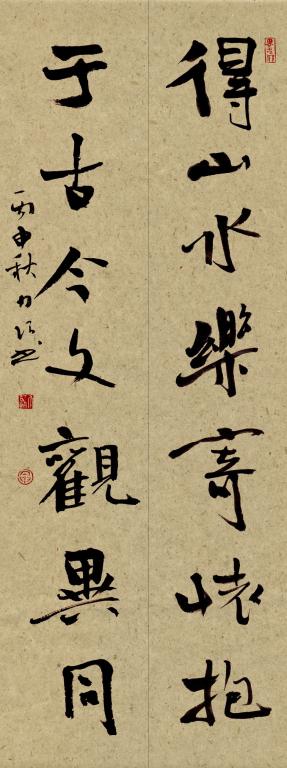 得山水樂寄懐抱
于古今文觀異同
丙申秋